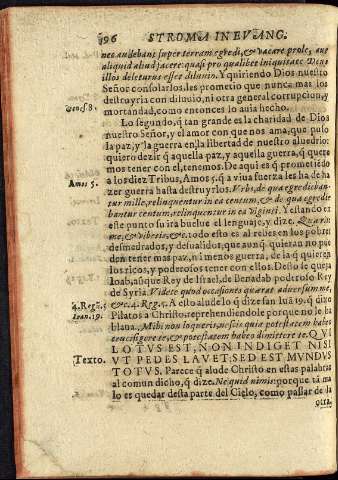 196 STROMA IN EVANG.
nec audebant super terram egredi, & vacare prole, aut
aliquid aliud facere: quasi pro qualibet iniquitate Deus
illos deleturus esset diluuio. Y quiriendo Dios nuestro
Señor consolarlos, les prometio que nunca mas los
destruyria con diluuio, ni otra general corrupcion, y
mortandad, como entonces lo auia hecho.
Lo segundo, q̃ tan grande es la charidad de Dios
nuestro Señor, y el amor con que nos ama, que puso
la paz, y la guerra en la libertad de nuestro aluedrio:
quiero dezir q̃ aquella paz, y aquella guerra, q̃ quere
mos tener con el, tenemos. De aqui es q̃ prometiẽdo
a los diez Tribus, Amos 5. q̃ a viua fuerça les ha de ha
Amos 5.
zer guerra hasta destruyrlos. Vrbs, de qua egredieban
tur mille, relinquentur in ea centum, & de qua egredie
bantur centum, relinquentur in ea viginti. Y estando en
este punto su ira buelue el lenguaje, y dize. Quærite
me, & viuetis, & todo esto es al reues en los pobres
desmedrados, y desualidos, que aunq̃ quieran no pue
den tener mas paz, ni menos guerra, de la q̃ quieren
los ricos, y poderosos tener con ellos. Desto se queja
Ioab, asque Rey de Israel, de Benadab poderoso Rey
de Syria. Videte quod occasiones quærat aduersum me,
4. Reg. 5
& c. 4. Reg. 5. A esto alude lo q̃ dize san Iuã 19. q̃ dixo
Ioan. 19.
Pilatos a Christo, reprehendiendole porque no le ha
blaua. Mihi non loqueris, nescis quia potestatem habeo
crucifigere te, & potestatem habeo dimittere te. QVI
LOTVS EST, NON INDIGET NISI
Texto.
VT PEDES LAVET: SED EST MVNDVS
TOTVS. Parece q̃ alude Christo en estas palabras
al comun dicho, q̃ dize. Ne quid nimis: porque tã ma
lo es quedar desta parte del Cielo, como passar de la
otra